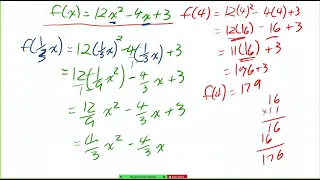 f(x) = 12x² - 4x + 3
f(⅓x) = 12(⅓x)² - 4(⅓x) + 3
= 12(1/9 x²) - 4/3 x + 3
= 12/9 x² - 4/3 x + 3
= 4/3 x² - 4/3 x
f(4) = 12(4)² - 4(4) + 3
= 12(16) - 16 + 3
= 11(16) + 3
= 176 + 3
f(4) = 179
16
× 11
16
16
176